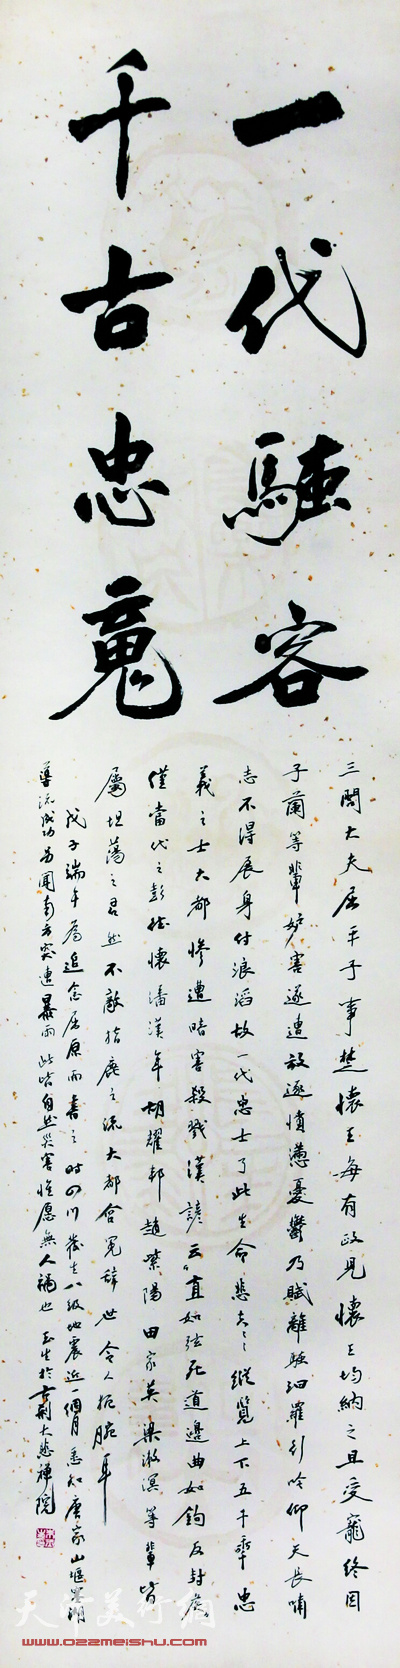 一代騷客
千古忠魂
三閭大夫屈平子事楚懷王每有政見懷王均納之且受寵終因
子蘭等輩妒害逐遭放逐憤懣憂鬱乃賦離騷汨羅行吟仰天長嘯
志不得展身付浪滔故一代忠士了此生命悲夫縱覽上下五千年忠
義之士大都慘遭暗害殺戮漢諺云直如弦死道邊曲如鈎反封侯
僅當代之彭德懷潘漢年胡耀邦趙紫陽田家英梁漱溟等輩皆
屬坦蕩之君然不敵指鹿之流大都含冤辭世令人扼腕耳
戊子端午為追念屈原而書之時四川發生八級地震近一個月悉知唐家山堰塞湖
導流成功另聞南方突遭暴雨此皆自然災害惟愿無人禍也 玉生於古荊大悲禪院
天津美術網
www.022meishu.com